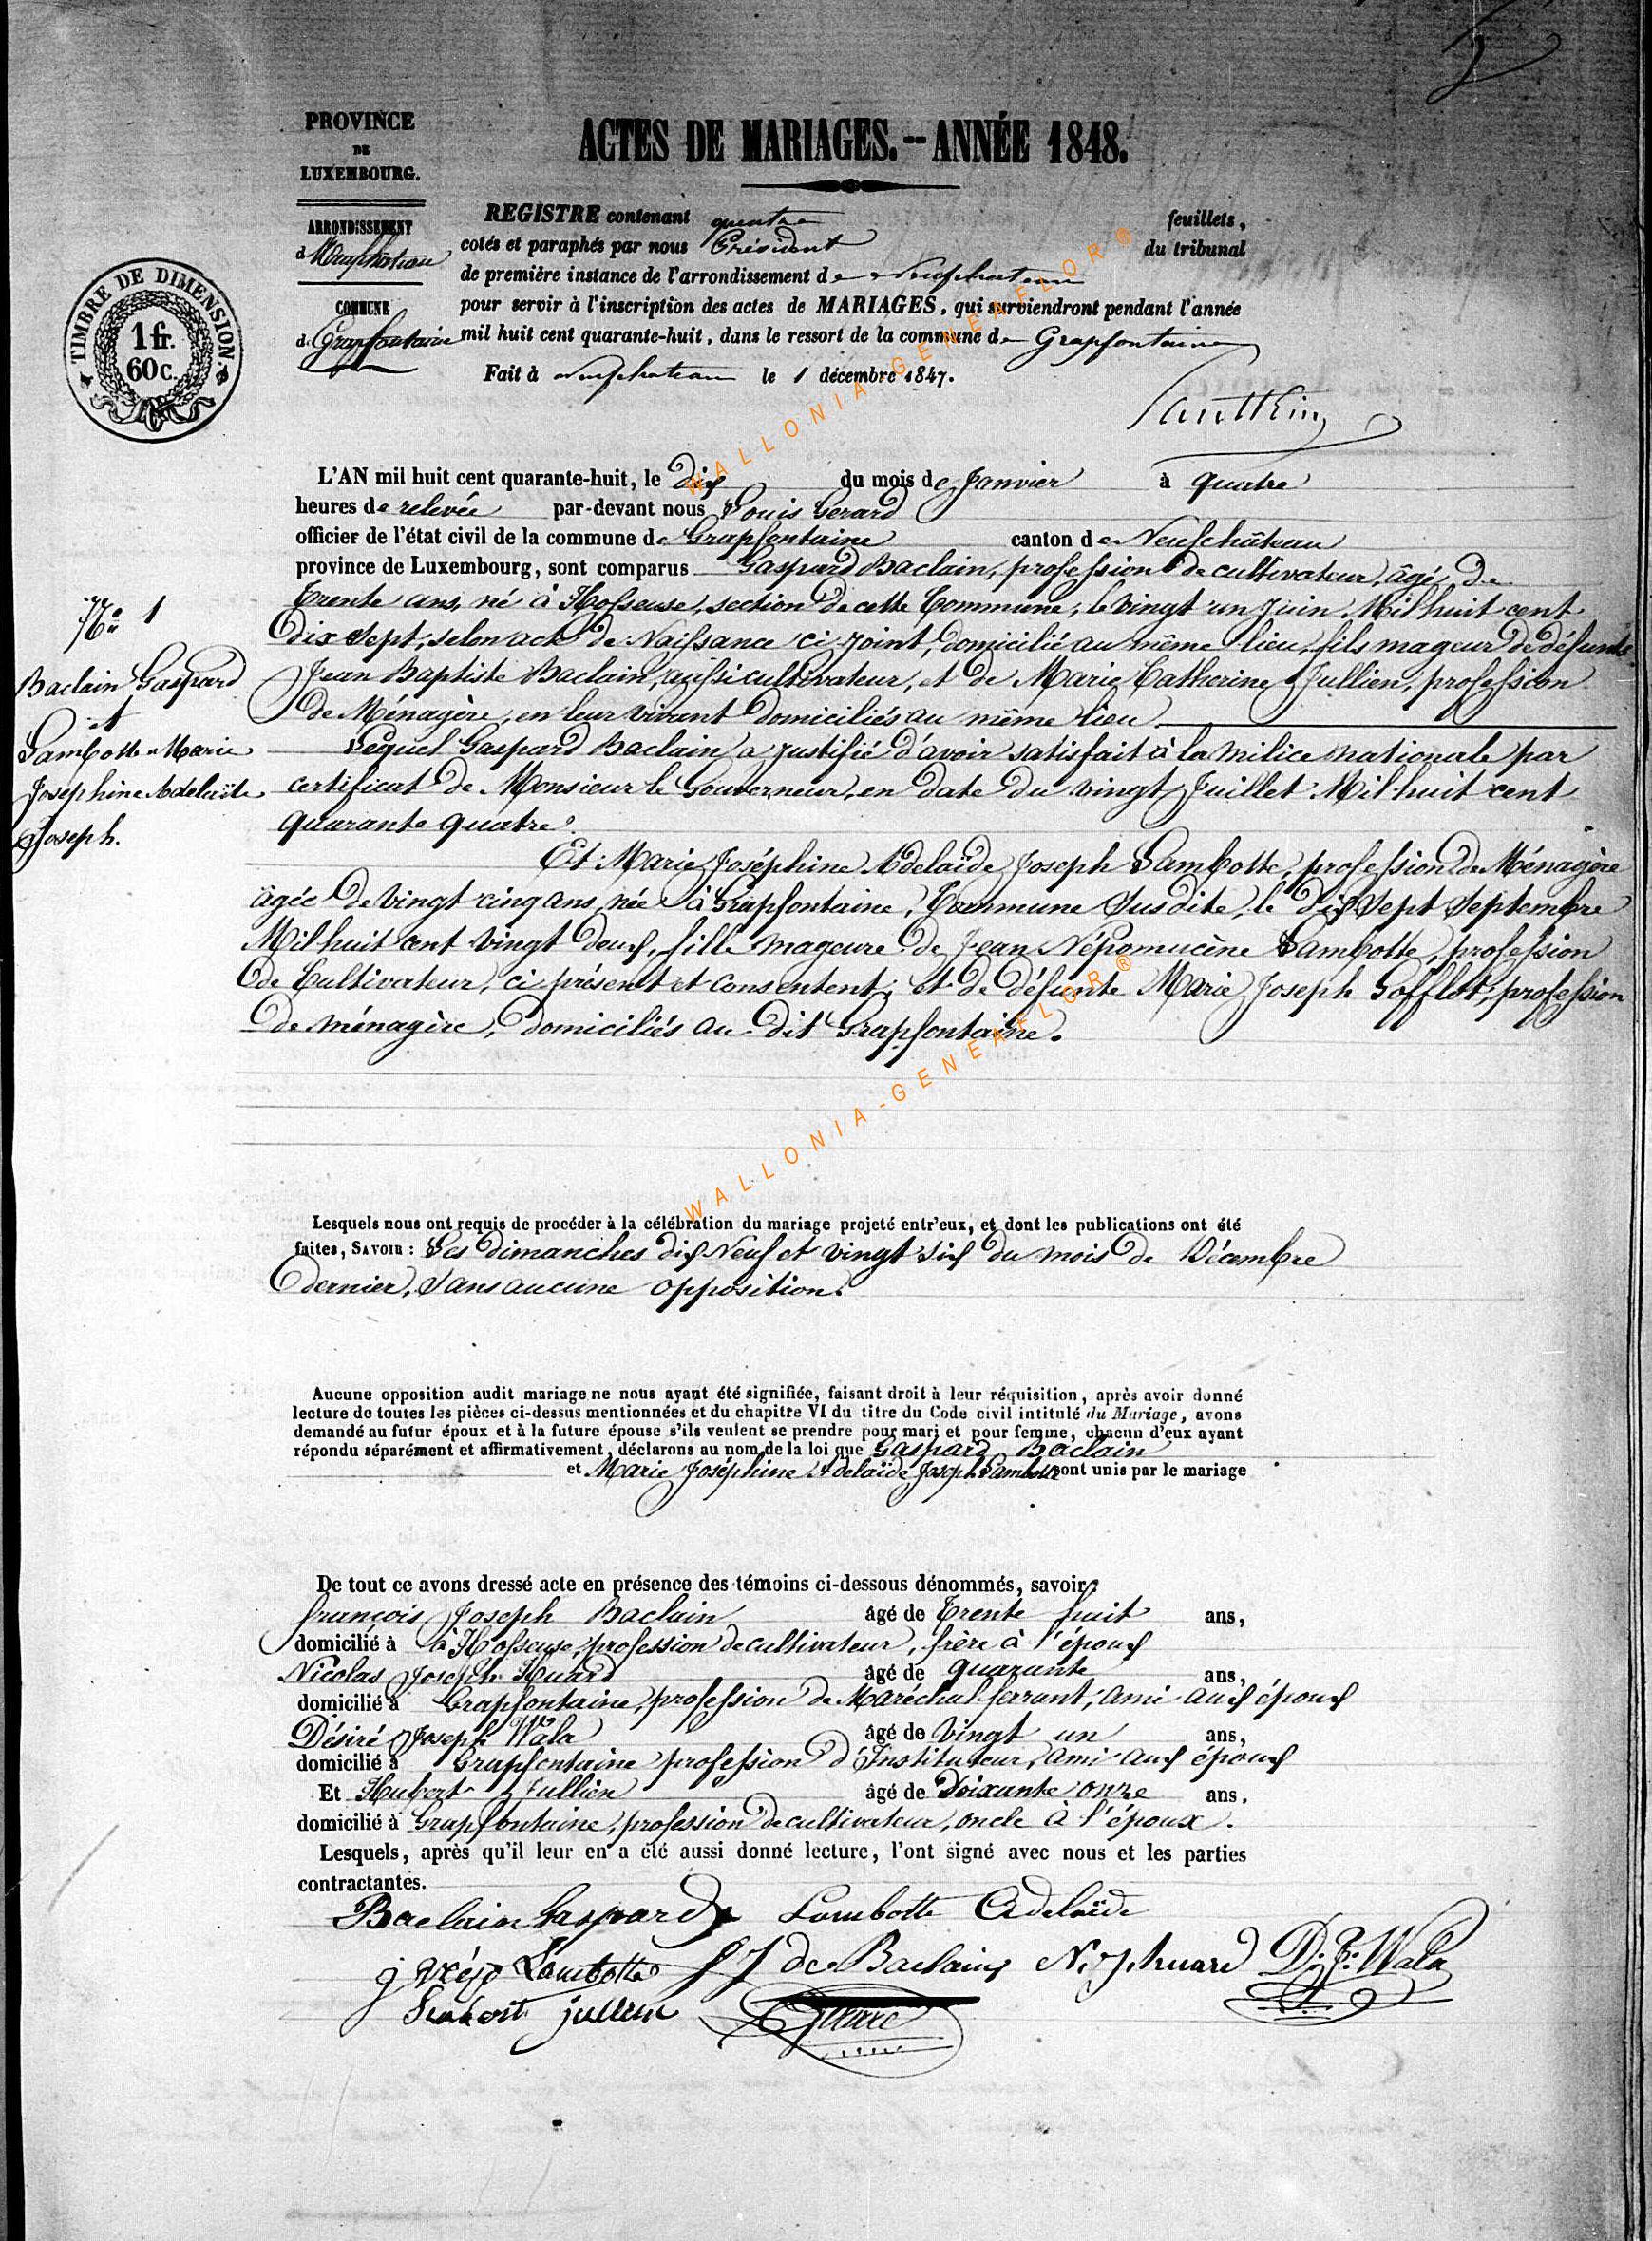 PROVINCE
DE
LUXEMBOURG.
ARRONDISSEMENT
d Neufchateau
COMMUNE
de Grapfontaine
TIMBRE DE DIMENSION.
1 fr.
60 c.
ACTES DE MARIAGES. -- ANNÉE 1848.
REGISTRE contenant quatre feuillets,
cotés et paraphés par nous Président du tribunal
de première instance de l'arrondissement de Neufchateau
pour servir à l'inscription des actes de MARIAGES, qui surviendront pendant l'année
mil huit cent quarante-huit, dans le ressort de la commune de Grapfontaine
Fait à Neufchateau le 1 décembre 1847.
L'AN mil huit cent quarante-huit, le Dix du mois de Janvier à quatre
heures de relevée par-devant nous Louis Gerard
officier de l'état civil de la commune de Grapfontaine canton de Neufchâteau
province de Luxembourg, sont comparus Gaspard Baclain, profession de cultivateur, âgé de
Trente ans, né à Hosseuse, section de cette Commune, le vingt un Juin Mil huit cent
Dix Sept, selon acte de Naissance ci joint, domicilié au même lieu, fils mageur de défunts
Jean Baptiste Baclain, aussi cultivateur, et de Marie Catherine Jullien, profession
de Ménagère, en leur vivant domiciliés au même lieu
Lequel Gaspard Baclain a justifié d'avoir satisfait à la milice nationale par
certificat de Monsieur le Gouverneur, en date du vingt Juillet Mil huit cent
quarante quatre.
Nº 1
Baclain Gaspard
et
Lambotte Marie
Joséphine Adelaïde
Joseph.
Et Marie Joséphine Adelaïde Joseph Lambotte, profession de Ménagère
âgée de vingt cinq ans, née à Grapfontaine, Commune Susdite, le dix Sept Septembre
Mil huit cent vingt deux, fille mageure de Jean Népomucène Lambotte, profession
de Cultivateur, ci présent et consentent; et de défunte Marie Joseph Gofflot, profession
de ménagère, domiciliés au dit Grapfontaine.
Lesquels nous ont requis de procéder à la célébration du mariage projeté entr'eux, et dont les publications ont été
faites, SAVOIR : Les dimanches dix Neuf et vingt Six du mois de Décembre
dernier, Sans aucune opposition.
Aucune opposition audit mariage ne nous ayant été signifiée, faisant droit à leur réquisition, après avoir donné
lecture de toutes les pièces ci-dessus mentionnées et du chapitre VI du titre du Code civil intitulé du Mariage, avons
demandé au futur époux et à la future épouse s'ils veulent se prendre pour mari et pour femme, chacun d'eux ayant
répondu séparément et affirmativement, déclarons au nom de la loi que Gaspard Baclain
et Marie Joséphine Adelaïde Joseph Lambotte sont unis par le mariage
De tout ce avons dressé acte en présence des témoins ci-dessous dénommés, savoir:
françois Joseph Baclain âgé de Trente huit ans,
domicilié à à Hosseuse, profession de cultivateur, frère à l'époux
Nicolas Joseph Huard âgé de quarante ans,
domicilié à Grapfontaine, profession de Maréchal ferrant, ami aux époux
Désiré Joseph Wala âgé de vingt un ans,
domicilié à Grapfontaine profession d'Instituteur, ami aux époux
Et Hubert Jullien âgé de Soixante onze ans,
domicilié à Grapfontaine, profession de cultivateur, oncle à l'époux.
Lesquels, après qu'il leur en a été aussi donné lecture, l'ont signé avec nous et les parties
contractantes.
Baclain Gaspard Lambotte Adelaïde
j Lambotte f J de Baclain N. J. huard D. J. Wala
jullien
WALLONIA-GENEAFLOR®
WALLONIA-GENEAFLOR®